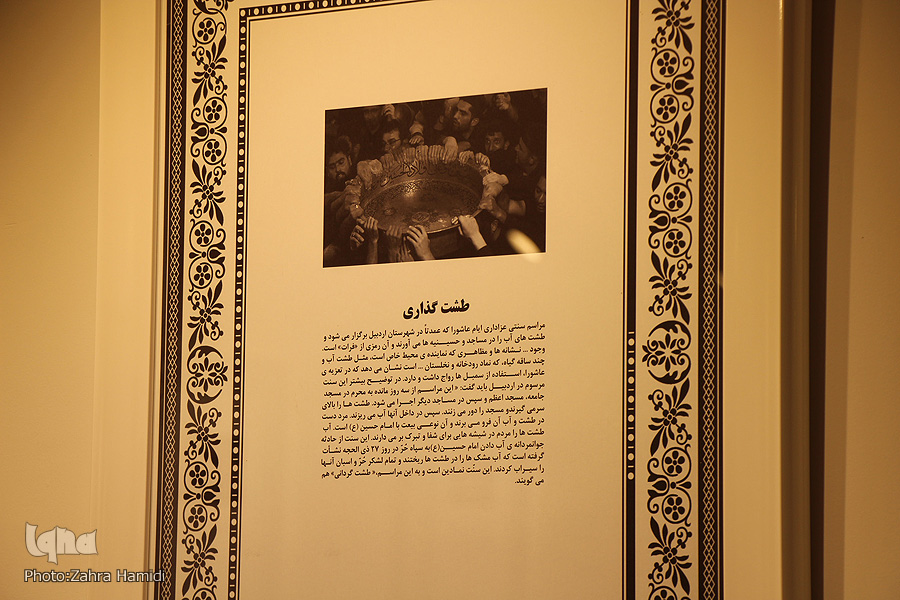 طشت گذاری
مراسم سنتی عزاداری ایام عاشورا که عمدتاً در شهرستان اردبیل برگزار می شود و
طشت های آب را در مساجد و حسینیه ها می آورند و آن رمزی از «فرات» است.
وجود ... نشانه ها و مظاهری که نماینده ی محیط خاص است، مثل طشت آب و
چند ساقه گیاه، که نماد رودخانه و نخلستان ... است نشان می دهد که در تعزیه ی
عاشورا، استفاده از سمبل ها رواج داشت و دارد. در توضیح بیشتر این سنت
مرسوم در اردبیل باید گفت: « این مراسم از سه روز مانده به محرم در مسجد
جامعه، مسجد اعظم و سپس در مساجد دیگر اجرا می شود. طشت ها را بالای
سرمی گیرندو مسجد را دور می زنند. سپس در داخل آنها آب می ریزند. مرد دست
در طشت و آب آن فرو می برند و آن نوعی بیعت با امام حسین (ع) است. آب
طشت ها را مردم در شیشه هایی برای شفا و تبرک بر می دارند. این سنت از حادثه
جوانمردانه ی آب دادن امام حسین(ع)به سپاه حُرّ در روز ۲۷ ذی الحجه نشأت
گرفته است که آب مشک ها را در طشت ها ریختند و تمام لشکر حُرّ و اسبان آنها
را سیراب کردند. این سنّت نمادین است و به این مراسم،« طشت گردانی» هم
می گویند.
iqna
Photo:Zahra Hamidi